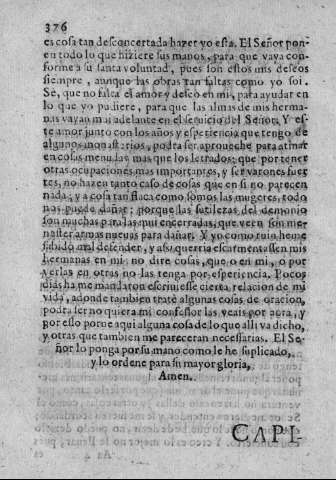 376
es cosa tan desconcertada hazer yo esta. El Señor pon-
en todo lo que hiziere sus manos, para que vaya con-
forme a su santa voluntad, pues son estos mis deseos
siempre, aunque las obras tan faltas como yo soi.
Sè, que no falta el amor y deseo en mi, para ayudar en
lo que yo pudiere, para que las almas de mis herma-
nas vayan mui adelante en el seruicio del Señor. Y es-
te amor junto con los años y esperiencia que tengo de
algunos monasterios, podra ser aproueche para atinar
en cosas menudas mas que los letrados; que por tener
otras ocupaciones mas importantes, y ser varones fuer-
tes, no hazen tanto caso de cosas que en si no parecen
nada; y a cosa tan flaca como somos las mugeres, todo
nos puede dañar; porque las sutilezas del demonio
son muchas para las mui encerradas, que ven son me-
nester armas nueuas para dañar. Y yo como ruin heme
sabido mal defender, y asi querria escarmentassen mis
hermanas en mi: no dire cosas, que o en mi, o por
verlas en otras no las tenga por esperiencia. Pocos
dias ha me mandaron escriuiesse cierta relacion de mi
vida, adonde tambien tratè algunas cosas de oracion,
podra ser no quiera mi confessor las veais por aora, y
por esto porne aqui alguna cosa de lo que alli va dicho,
y otras que tambien me pareceran necessarias. El Se-
ñor lo ponga por su mano como le he suplicado,
y lo ordene para su mayor gloria,
Amen.
CAPI-